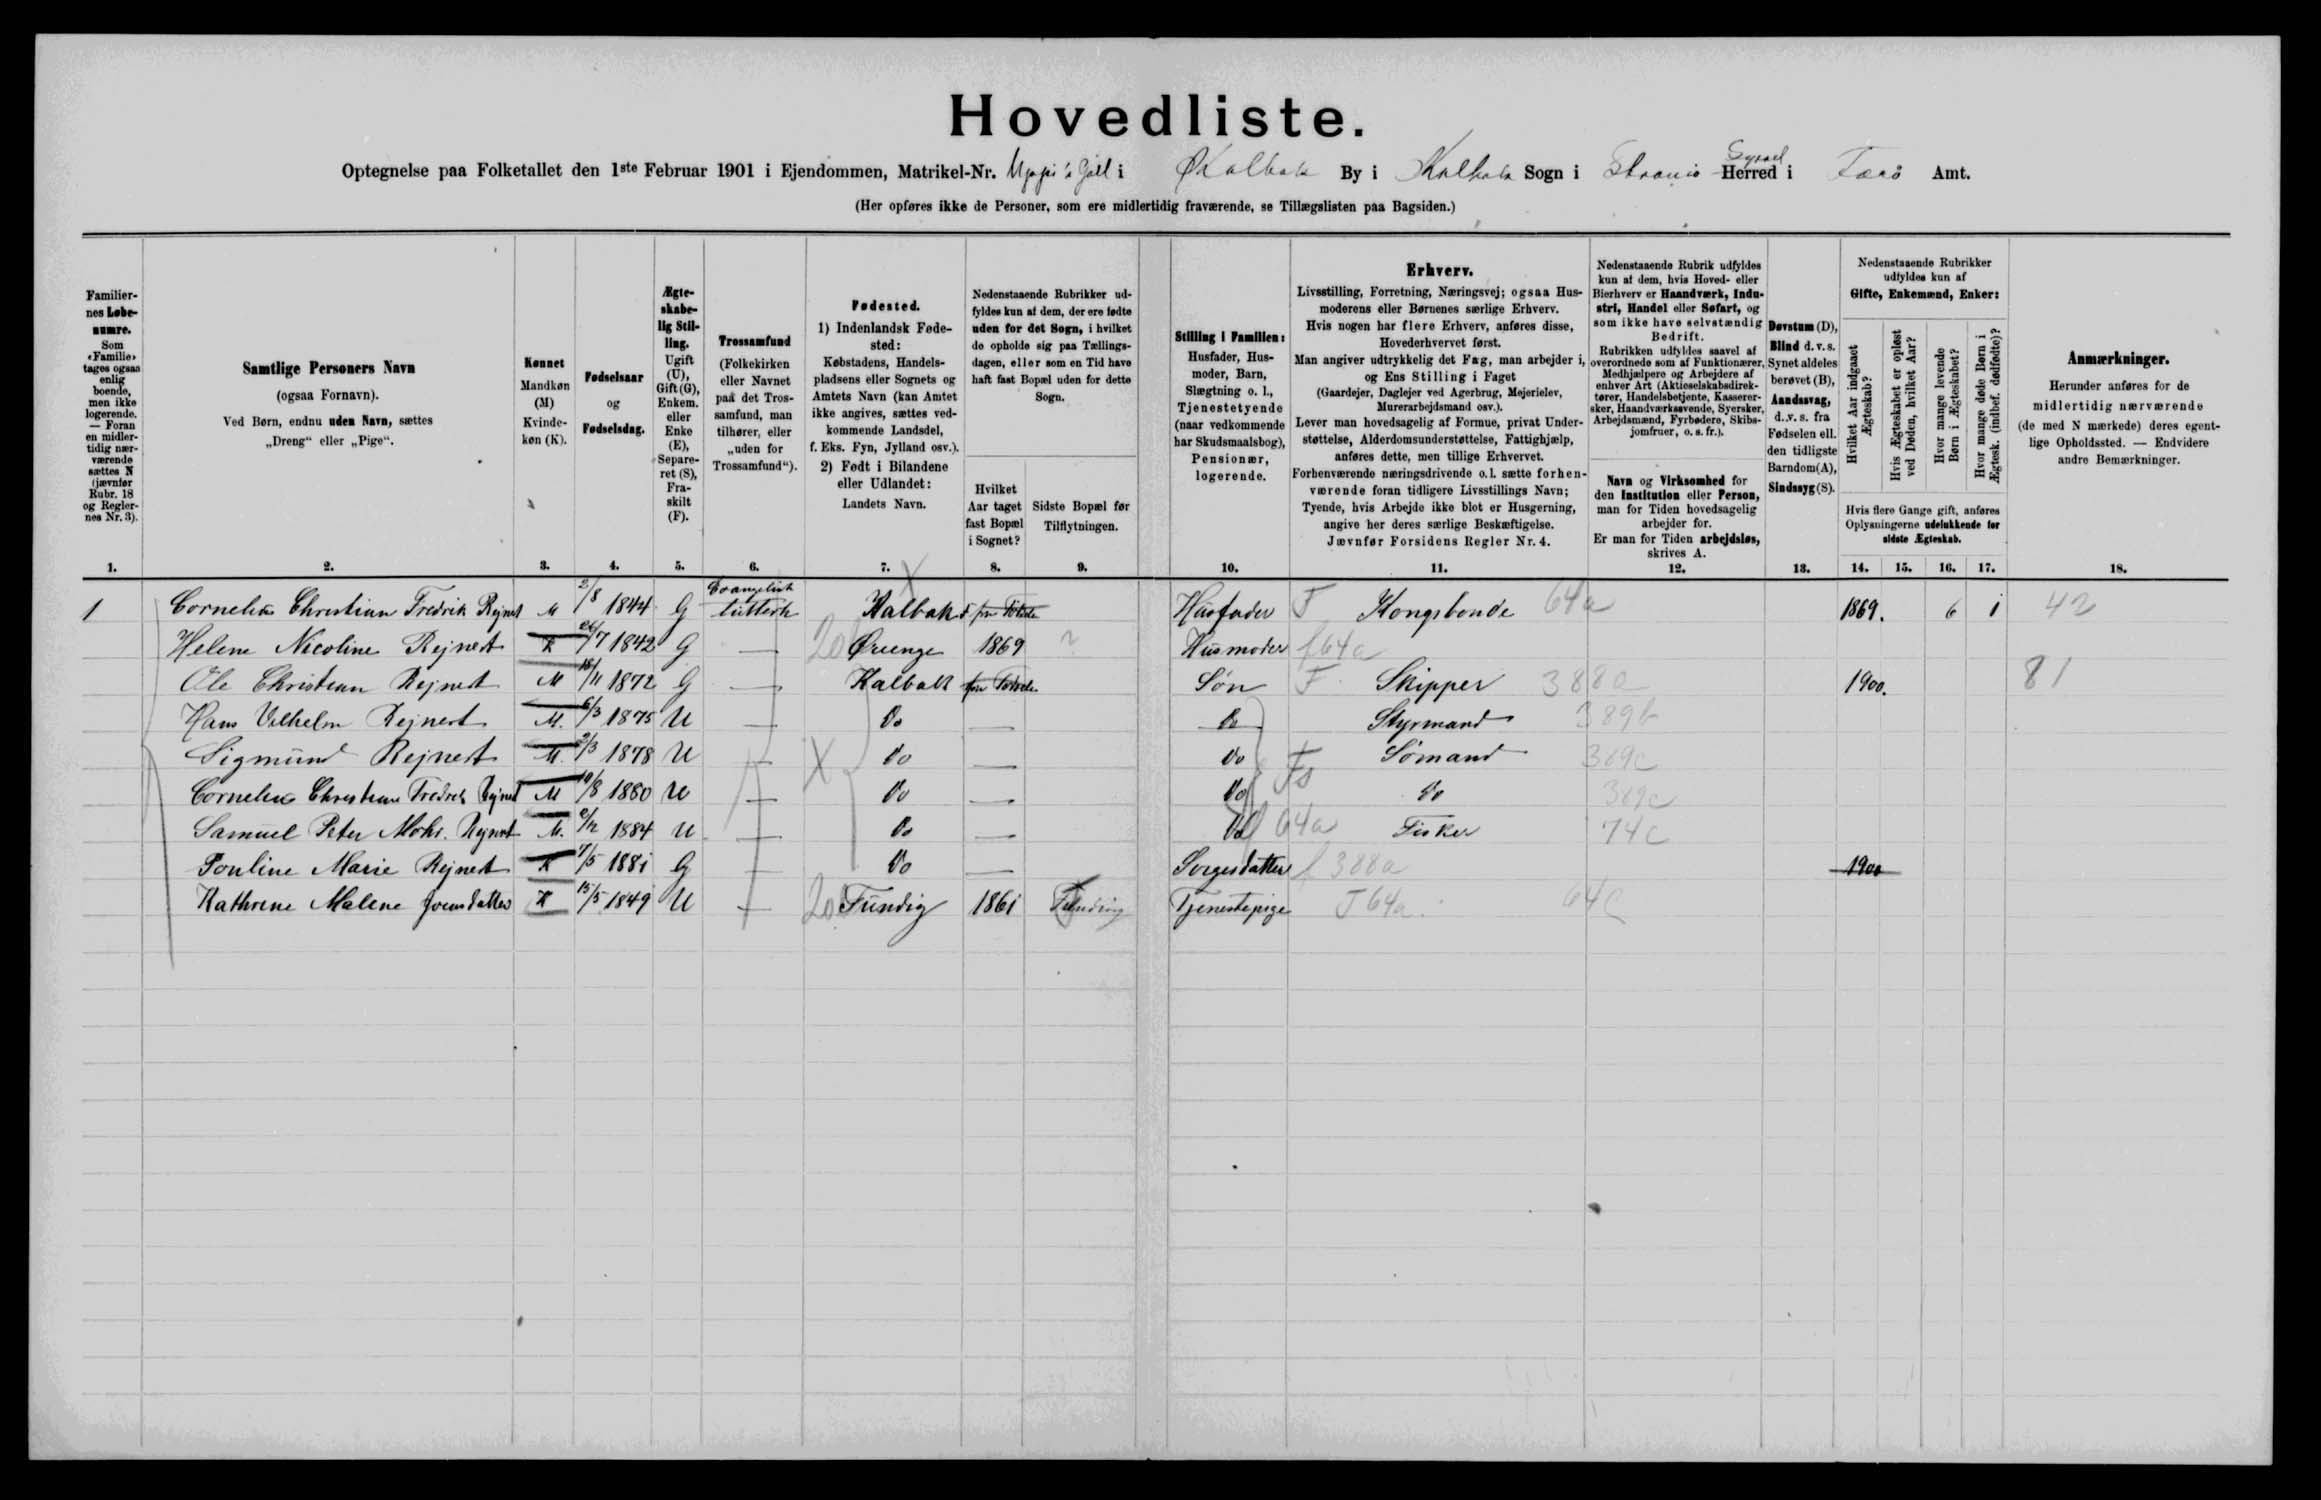 Hovedliste.
Optegnelse paa Folketallet den 1ste Februar 1901 i Ejendommen, Matrikel-Nr. i Kalbak By i Kalbak Sogn i Strømø Syssel Herred i Færø Amt.
(Her opføres ikke de Personer, som ere midlertidig fraværende, se Tillægslisten paa Bagsiden.)
Familier-
nes Løbe-
numre.
Som
«Familie»
tages ogsaa
enlig
boende,
men ikke
logerende.
— Foran
en midler-
tidig nær-
værende
sættes N
(jævnfør
Rubr. 18
og Regler-
nes Nr. 3).
Samtlige Personers Navn
(ogsaa Fornavn).
Ved Børn, endnu uden Navn, sættes
„Dreng“ eller „Pige“.
Kønnet
Mandkøn
(M)
Kvinde-
køn (K).
Fødselsaar
og
Fødselsdag.
Ægte-
skabe-
lig Stil-
ling.
Ugift
(U),
Gift (G),
Enkem.
eller
Enke
(E),
Separe-
ret (S),
Fra-
skilt
(F).
Trossamfund
(Folkekirken
eller Navnet
paa det Tros-
samfund, man
tilhører, eller
„uden for
Trossamfund“).
Fødested.
1) Indenlandsk Føde-
sted:
Købstadens, Handels-
pladsens eller Sognets og
Amtets Navn (kan Amtet
ikke angives, sættes ved-
kommende Landsdel,
f. Eks. Fyn, Jylland osv.).
2) Født i Bilandene
eller Udlandet:
Landets Navn.
Nedenstaaende Rubrikker ud-
fyldes kun af dem, der ere fødte
uden for det Sogn, i hvilket
de opholde sig paa Tællings-
dagen, eller som en Tid have
haft fast Bopæl uden for dette
Sogn.
Hvilket
Aar taget
fast Bopæl
i Sognet?
Sidste Bopæl før
Tilflytningen.
Stilling i Familien:
Husfader, Hus-
moder, Barn,
Slægtning o. l.,
Tjenestetyende
(naar vedkommende
har Skudsmaalsbog),
Pensionær,
logerende.
Erhverv.
Livsstilling, Forretning, Næringsvej; ogsaa Hus-
moderens eller Børnenes særlige Erhverv.
Hvis nogen har flere Erhverv, anføres disse,
Hovederhvervet først.
Man angiver udtrykkelig det Fag, man arbejder i,
og Ens Stilling i Faget
(Gaardejer, Daglejer ved Agerbrug, Mejerielev,
Murerarbejdsmand osv.).
Lever man hovedsagelig af Formue, privat Under-
støttelse, Alderdomsunderstøttelse, Fattighjælp,
anføres dette, men tillige Erhvervet.
Forhenværende næringsdrivende o. l. sætte forhen-
værende foran tidligere Livsstillings Navn;
Tyende, hvis Arbejde ikke blot er Husgerning,
angive her deres særlige Beskæftigelse.
Jævnfør Forsidens Regler Nr. 4.
Nedenstaaende Rubrik udfyldes
kun af dem, hvis Hoved- eller
Bierhverv er Haandværk, Indu-
stri, Handel eller Søfart, og
som ikke have selvstændig
Bedrift.
Rubrikken udfyldes saavel af
overordnede som af Funktionærer,
Medhjælpere og Arbejdere af
enhver Art (Aktieselskabsdirek-
tører, Handelsbetjente, Kasserer-
sker, Haandværkssvende, Syersker,
Arbejdsmænd, Fyrbødere, Skibs-
jomfruer, o. s. fr.).
Navn og Virksomhed for
den Institution eller Person,
man for Tiden hovedsagelig
arbejder for.
Er man for Tiden arbejdsløs,
skrives A.
Døvstum (D),
Blind d. v. s.
Synet aldeles
berøvet (B),
Aandssvag,
d. v. s. fra
Fødselen ell.
den tidligste
Barndom (A),
Sindssyg (S).
Nedenstaaende Rubrikker
udfyldes kun af
Gifte, Enkemænd, Enker:
Hvilket Aar indgaaet
Ægteskab?
Hvis Ægteskabet er opløst
ved Døden, hvilket Aar?
Hvor mange levende
Børn i Ægteskabet?
Hvor mange døde Børn i
Ægtesk. (indbef. dødfødte)?
Hvis flere Gange gift, anføres
Oplysningerne udelukkende for
sidste Ægteskab.
Anmærkninger.
Herunder anføres for de
midlertidig nærværende
(de med N mærkede) deres egent-
lige Opholdssted. — Endvidere
andre Bemærkninger.
1. 2. 3. 4. 5. 6. 7. 8. 9. 10. 11. 12. 13. 14. 15. 16. 17. 18.
1 Cornelius Christian Fredrik Rejnert M 2/8 1844 G Evangelisk luttersk Kalbak Husfader F Kongsbonde 64a 1869. 6 1 42
Helene Nicoline Rejnert K 26/7 1842 G — 20 1869 ? Husmoder f64a
Ole Christian Rejnert M 18/11 1872 G — Kalbak Søn F Skipper 388a 1900. 81
Hans Vilhelm Rejnert M. 6/3 1875 U — Do — Do Styrmand 389b
Sigmund Rejnert M. 2/3 1878 U — X Do — Do Fs Sømand 389c
Cornelius Christian Fredrik Rejnert M 10/8 1880 U — Do — Do Do 389c
Samuel Peter Mohr. Rejnert M. 2/12 1884 U — Do — Do 64a Fisker 74c
Pouline Marie Rejnert K 7/5 1881 G — Do — Svigerdatter f 388a 1900
Kathrine Malene Joensdatter K 15/5 1849 U — 20 Funding 1861 Funding Tjenestepige T64a. 64c